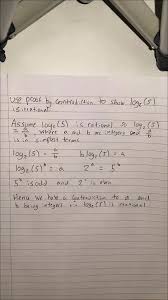 Use proof by contradiction to show log₂(5)
is irrational
Assume log₂(5) is rational so log₂(5)
= a/b, where a and b are integers and
is in simplest terms
log₂(5) = a/b    b log₂(5) = a
log₂(5)ᵇ = a    2ᵃ = 5ᵇ
5ᵇ is odd and 2ᵃ is even
Hence we have a contradiction to a and
b being integers ∴ log₂(5) is irrational